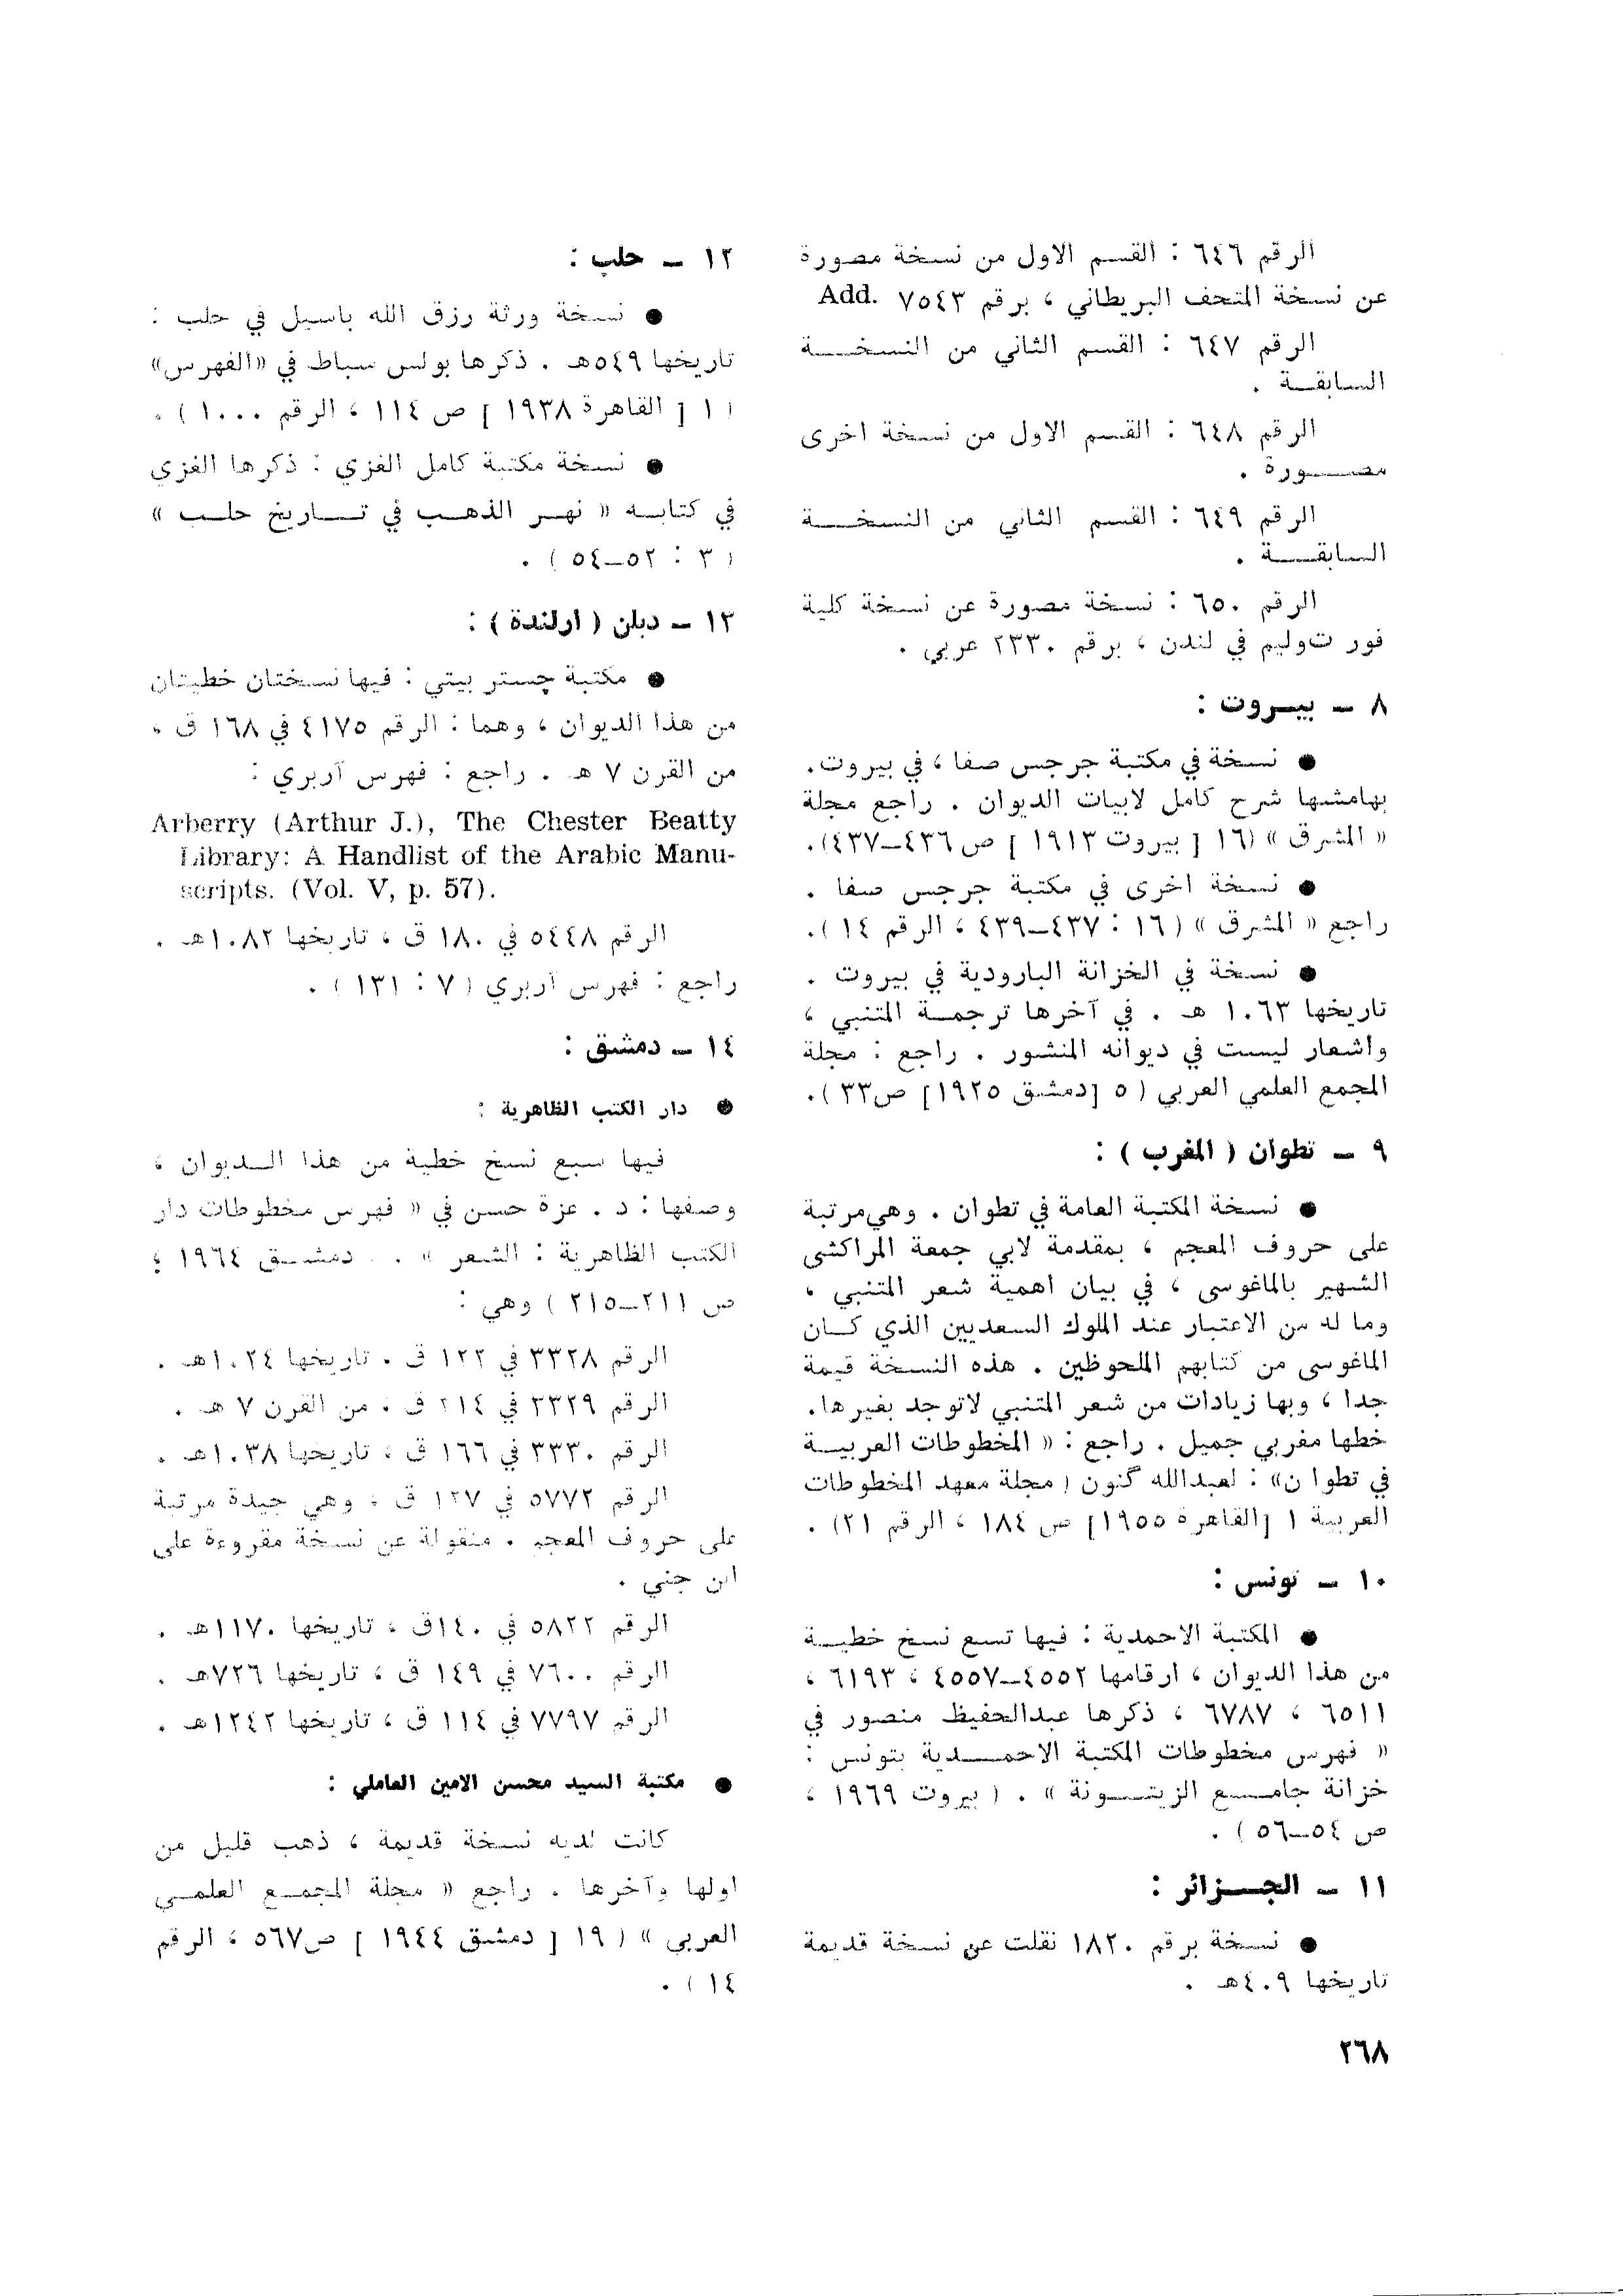 الرقم ٦٤٦ : القسم الاول من نسخة مصورة
عن نسخة المتحف البريطاني ، برقم ٧٥٤٣ .Add
الرقم ٦٤٧ : القسم الثاني من النسخـــة
السابقـة .
الرقم ٦٤٨ : القسم الاول من نسخة اخرى
مصـــورة .
الرقم ٦٤٩ : القسم الثاني من النسخـــة
السابقـــة .
الرقم ٦٥٠ : نسخة مصورة عن نسخة كلية
فور ت‌وليم في لندن ، برقم ٢٣٣٠ عربي .
٨ ـ بيـروت :
● نسخة في مكتبة جرجس صفا ، في بيروت.
بهامشها شرح كامل لابيات الديوان . راجع مجلة
« المشرق » (١٦ [ بيروت ١٩١٣ ] ص ٤٣٦ــ٤٣٧).
● نسخة اخرى في مكتبة جرجس صفا .
راجع « المشرق » (١٦ : ٤٣٧ــ٤٣٩ ، الرقم ١٤ ).
● نسخة في الخزانة البارودية في بيروت .
تاريخها ١٠٦٣ هـ . في آخرها ترجمـة المتنبي ،
واشعار ليست في ديوانه المنشور . راجع : مجلة
المجمع العلمي العربي ( ٥ [دمشق ١٩٢٥] ص٣٣ ).
٩ ـ تطوان ( المغرب ) :
● نسخة المكتبة العامة في تطوان . وهي‌مرتبة
على حروف المعجم ، بمقدمة لابي جمعة المراكشى
الشهير بالماغوسى ، في بيان اهمية شعر المتنبي ،
وما له من الاعتبار عند الملوك السعديين الذي كـان
الماغوسى من كتابهم الملحوظين . هذه النسخة قيمة
جدا ، وبها زيادات من شعر المتنبي لاتوجد بغيرها.
خطها مغربي جميل . راجع : « المخطوطات العربيـة
في تطوا ن» : لعبدالله گنون ( مجلة معهد المخطوطات
العربية ١ [القاهرة ١٩٥٥] ص ١٨٤ ، الرقم ٢١) .
١٠ ـ تونس :
● المكتبة الاحمدية : فيها تسع نسخ خطيـة
من هذا الديوان ، ارقامها ٤٥٥٢ــ٤٥٥٧ ، ٦١٩٣ ،
٦٥١١ ، ٦٧٨٧ ، ذكرها عبدالحفيظ منصور في
« فهرس مخطوطات المكتبة الاحمـــدية بتونس :
خزانة جامـــع الزيتـــونة » . ( بيروت ١٩٦٩ ،
ص ٥٤ــ٥٦ ) .
١١ ـ الجـــزائر :
● نسخة برقم ١٨٢٠ نقلت عن نسخة قديمة
تاريخها ٤٠٩هـ .
١٢ ـ حلب :
● نسخة ورثة رزق الله باسيل في حلب :
تاريخها ٥٤٩هـ . ذكرها بولس سباط في «الفهرس»
( ١ [ القاهرة ١٩٣٨ ] ص ١١٤ ، الرقم ١٠٠٠ ) .
● نسخة مكتبة كامل الغزي : ذكرها الغزي
في كتابـه « نهـر الذهـب في تـــاريخ حلـب »
( ٣ : ٥٢ــ٥٤ ) .
١٣ ـ دبلن ( ارلندة ) :
● مكتبة چستر بيتي : فيها نسختان خطيتان
من هذا الديوان ، وهما : الرقم ٤١٧٥ في ١٦٨ ق ،
من القرن ٧ هـ . راجع : فهرس آربري :
Arberry (Arthur J.), The Chester Beatty
Library: A Handlist of the Arabic Manu-
scripts. (Vol. V, p. 57).
الرقم ٥٤٤٨ في ١٨٠ ق ، تاريخها ١٠٨٢هـ .
راجع : فهرس آربري ( ٧ : ١٣١ ) .
١٤ ـ دمشق :
● دار الكتب الظاهرية :
فيها سبع نسخ خطية من هذا الـديوان ،
وصفها : د . عزة حسن في « فهرس مخطوطات دار
الكتب الظاهرية : الشعر » . . دمشـق ١٩٦٤ ؛
ص ٢١١ــ٢١٥ ) وهي :
الرقم ٣٣٢٨ في ١٢٢ ق . تاريخها ١٠٢٤هـ .
الرقم ٣٣٢٩ في ٢١٤ ق ، من القرن ٧ هـ .
الرقم ٣٣٣٠ في ١٦٦ ق ، تاريخها ١٠٣٨هـ .
الرقم ٥٧٧٢ في ١٢٧ ق ، وهي جيدة مرتبة
على حروف المعجم . منقولة عن نسخة مقروءة على
ابن جني .
الرقم ٥٨٢٢ في ١٤٠ق ، تاريخها ١١٧٠هـ .
الرقم ٧٦٠٠ في ١٤٩ ق ، تاريخها ٧٢٦هـ .
الرقم ٧٧٩٧ في ١١٤ ق ، تاريخها ١٢٤٢هـ .
● مكتبة السيد محسن الامين العاملي :
كانت لديه نسخة قديمة ، ذهب قليل من
اولها وآخرها . راجع « مجلة المجمـع العلمـي
العربي » ( ١٩ [ دمشق ١٩٤٤ ] ص٥٦٧ ، الرقم
١٤ ) .
٢٦٨